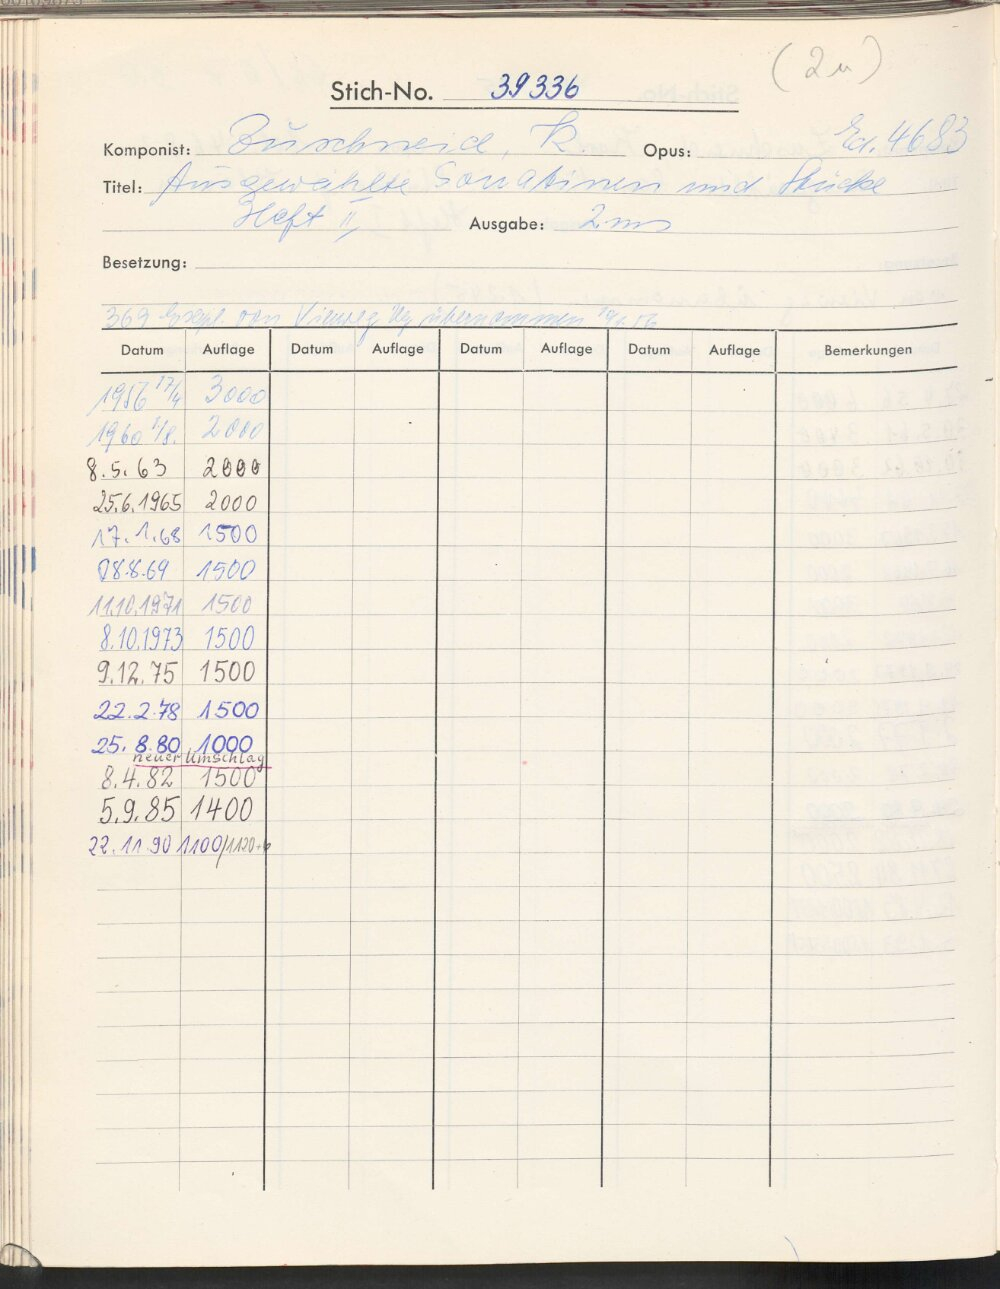 (2 u)
Stich-No. 39336
Komponist: Zuschneid, K. Opus: Ed. 4683
Titel: Ausgewählte Sonatinen und Stücke
Heft II, Ausgabe: 2 ms
Besetzung:
369 Expl. von Vieweg übernommen
Datum Auflage Datum Auflage Datum Auflage Datum Auflage Bemerkungen
1956 17/4 3000
1960 1/8. 2000
8.5.63 2000
25.6.1965 2000
17.1.68 1500
08.8.69 1500
11.10.1971 1500
8.10.1973 1500
9.12.75 1500
22.2.78 1500
25.8.80 1000
neuer Umschlag
8.4.82 1500
5.9.85 1400
22.11.90 1100/1120+6